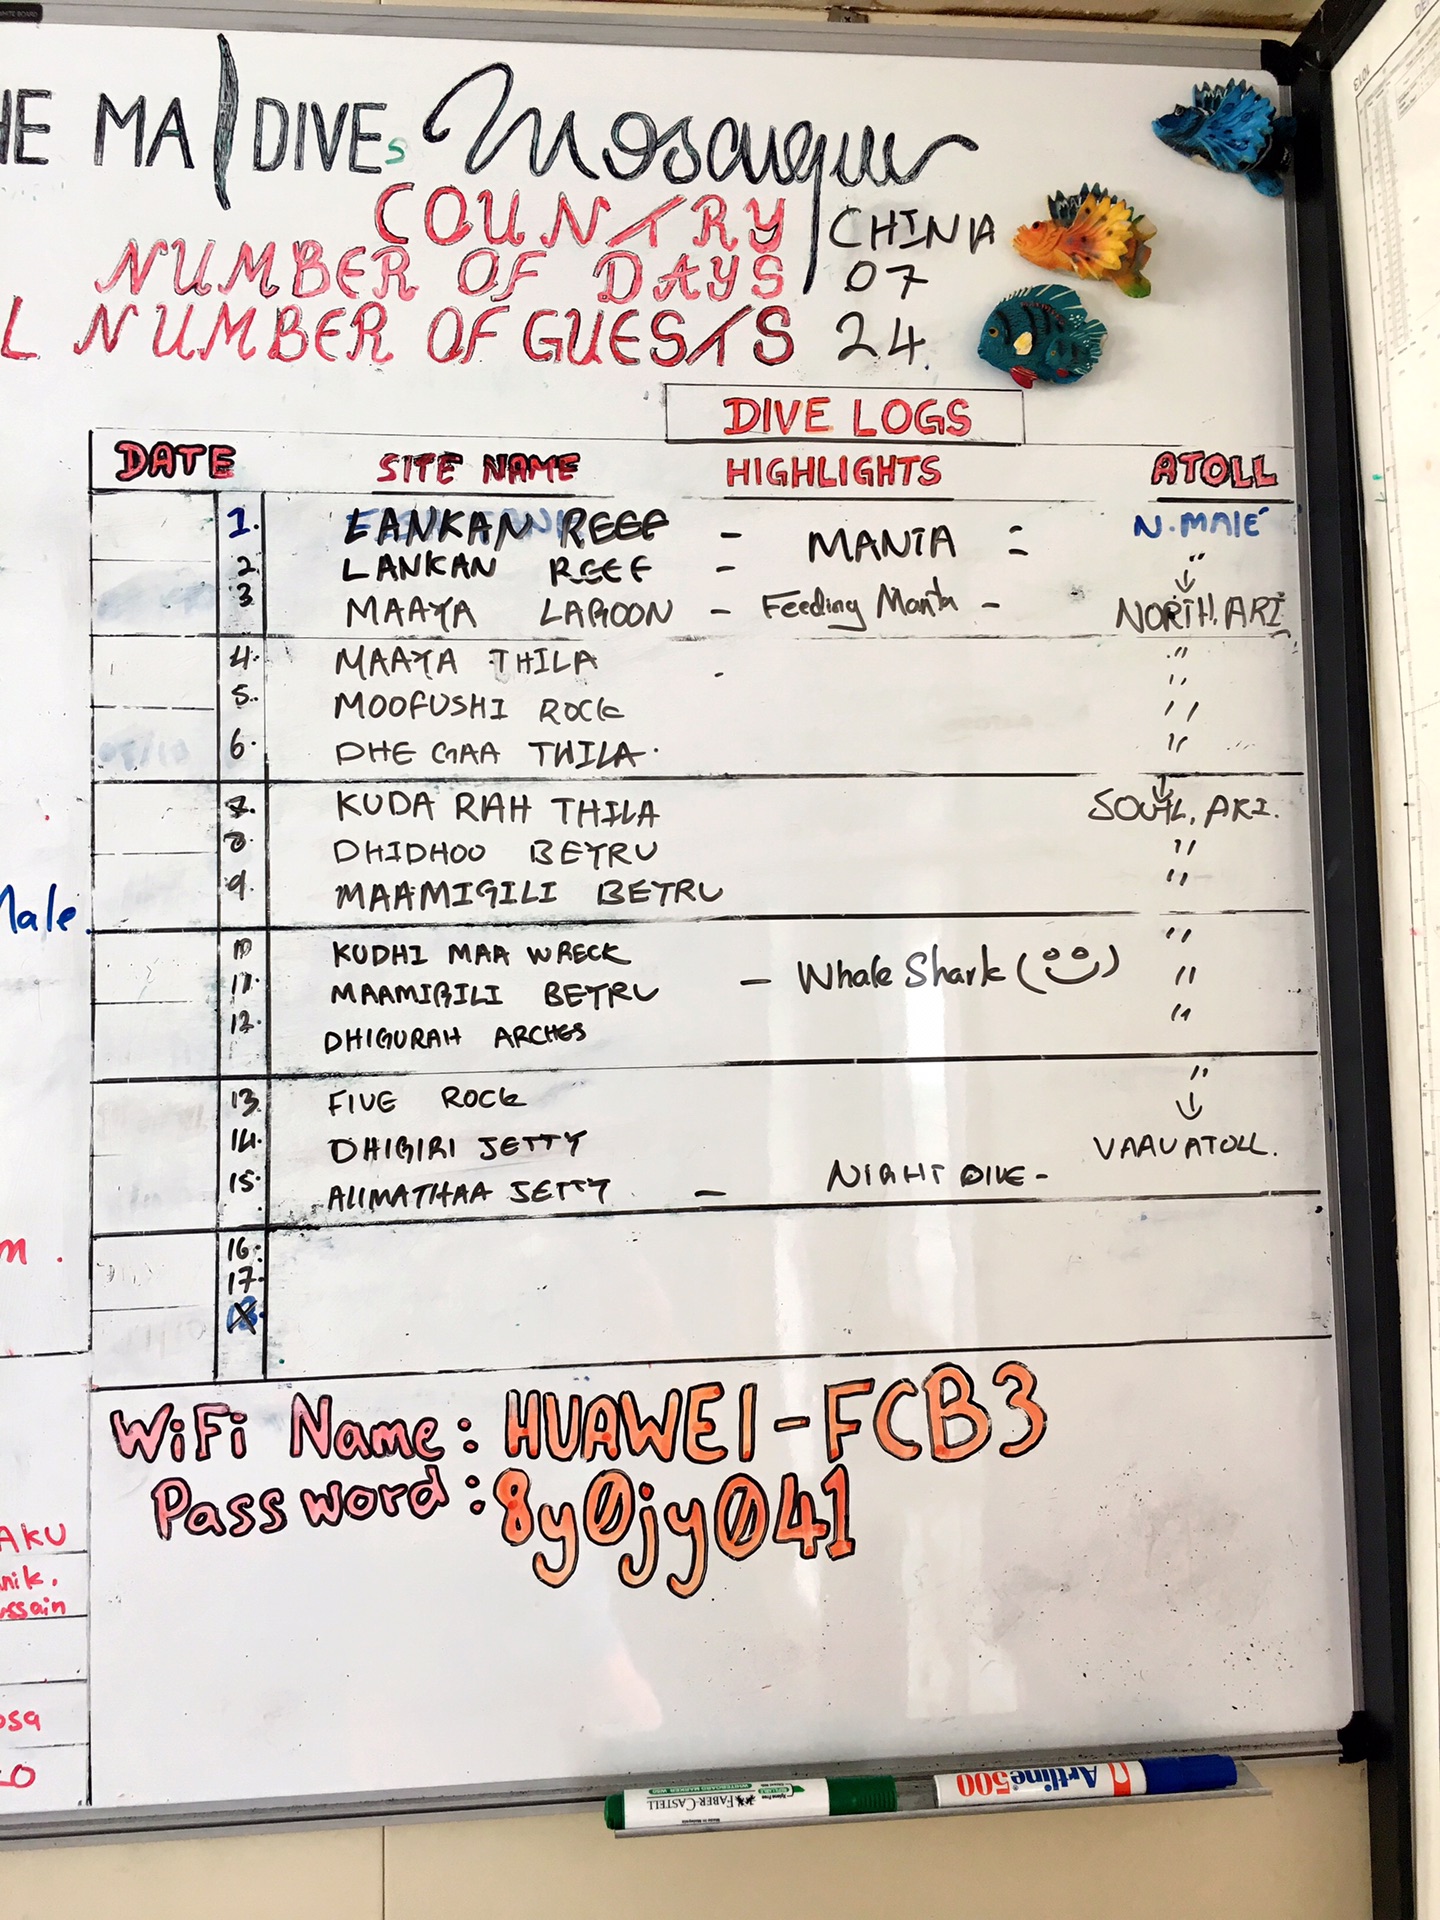 HE MALDIVEs Mosaique
COUNTRY CHINA
NUMBER OF DAYS 07
L NUMBER OF GUESTS 24
DIVE LOGS
DATE SITE NAME HIGHLIGHTS ATOLL
1. LANKAN REEF - MANTA = N. MALE'
2. LANKAN REEF - "
3. MAAYA LAGOON - Feeding Manta - NORTH. ARI
4. MAAYA THILA - "
5. MOOFUSHI ROCK "
6. DHE GAA THILA. "
7. KUDA RAH THILA SOUTH. ARI.
8. DHIDHOO BEYRU "
9. MAAMIGILI BEYRU "
Male.
10 KUDHI MAA WRECK "
11. MAAMIGILI BEYRU - Whale Shark "
12. DHIGURAH ARCHES "
13. FIVE ROCK "
14. DHIGIRI JETTY VAAVU ATOLL.
15. ALIMATHAA JETTY - NIGHT DIVE -
16.
m.
17.
WiFi Name: HUAWEI-FCB3
Password: 8y0jy041
AKU
nik.
ussain
osa
FABER-CASTELL
Artline 500